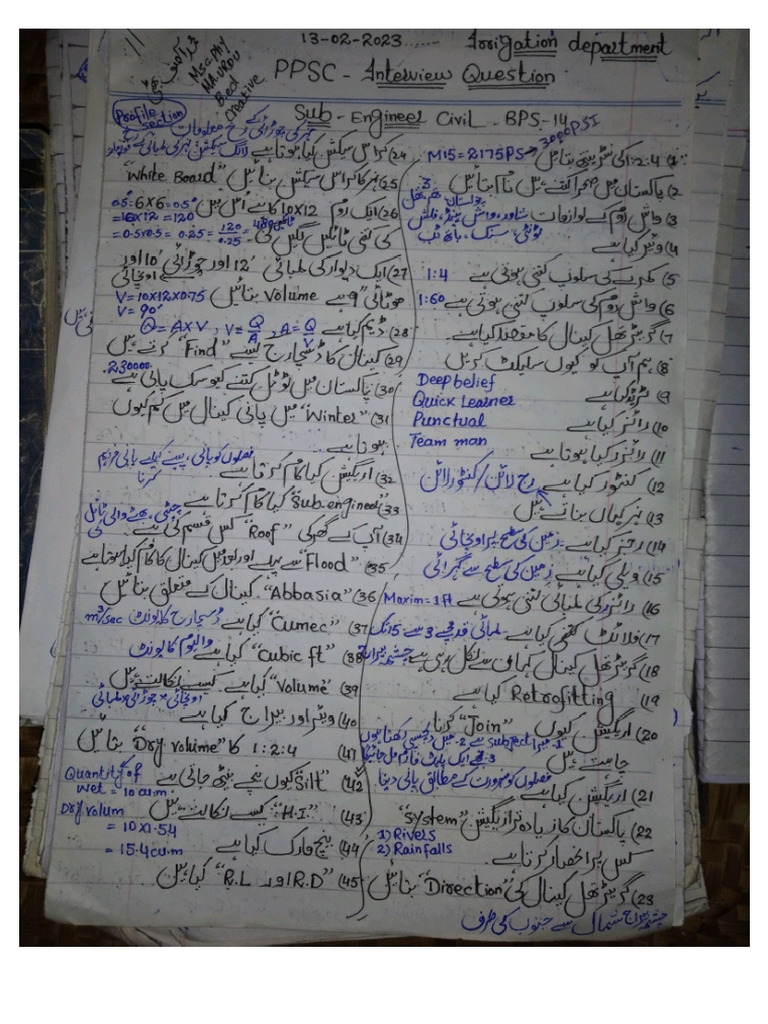 13-02-2023...... Irrigation department
MSc=Phy
MA-URDU
Bed
Creative
PPSC - Interview Question
Sub-Engineer Civil. BPS-14
Profile section
3000PSI
1) 1:2:4 کی سٹرینتھ بتائیں M15=2175PS→
2) پاکستان میں صحرا کتنے ہیں نام بتائیں 3
3) واش روم کے لوازمات شاور، واش بیسن، فلش
ٹونٹی، سنک، باتھ ٹب
4) ویئر کیا ہے
5) کمرے کی سلوپ کتنی ہوتی ہے 1:4
6) واش روم کی سلوپ کتنی ہوتی ہے 1:60
7) گریٹر تھل کینال کا مقصد کیا ہے۔
8) ہم آپ کو کیوں سلیکٹ کریں
Deep belief
Quick Learner
Punctual
Team man
9) ٹریڈ کیا ہے
10) رائزر کیا ہے
11) رائزر کیا ہوتا ہے
12) کنٹور کیا ہے رج لائن/کنٹور لائن
13) نہر کہاں بناتے ہیں
14) رجز کیا ہے زمین کی سطح پر اونچائی
15) ویلی کیا ہے زمین کی سطح سے گہرائی
16) رائزر کی لمبائی کتنی ہوتی ہے Maxim=1ft
17) فلائٹ کتنی کیا ہے۔ لمبائی قدمچے 3 سے 15 تک
18) گریٹر تھل کینال کہاں سے نکل رہی ہے چشمہ بیراج
19) Retrofitting کیا ہے
20) اریگیشن کیوں "Join" کرنا
چاہتے ہیں
1. میرا subject ہے 2. میں دلچسپی رکھتا ہوں
3. مجھے ایک پلیٹ فارم مل جائیگا
21) اریگیشن کیا ہے فصلوں کو ضرورت کے مطابق پانی دینا
22) پاکستان کا زیادہ تر اریگیشن "System"
کس پر انحصار کرتا ہے۔
1) Rivers
2) Rainfalls
23) گریٹر تھل کینال کی "Direction" بتائیں
چشمہ بیراج شمال سے جنوب کی طرف
24) کراس سیکشن کیا ہوتا ہے
25) نہر کا کراس سیکشن بنائیں "White Board"
26) ایک روم 10x12 کا ہے اس میں 0.5 6x6=0.5°
کی کتنی ٹائلیں لگیں گی۔
=10x12 = 120
=0.5x0.5 = 0.25 = 120/0.25 = 480 ٹائلیں
27) ایک دیوار کی لمبائی 12' اور چوڑائی 10' اور
موٹائی "9 ہے Volume بتائیں
V=10x12x0.75
V=90°
28) ڈیم کیا ہے Q=AxV, V=Q/A, A=Q/V
29) کینال کا ڈسچارج کیسے "Find" کرتے ہیں
30) پاکستان میں ٹوٹل کتنے کیوسک پانی ہے .230000.
31) "Winter" میں پانی کینال میں کم کیوں
ہوتا ہے۔
32) اریگیشن کیا کام کرتا ہے فصلوں کو پانی، پینے کیلئے پانی فراہم
کرنا
33) "Sub engineer" کیا کام کرتا ہے
34) آپ کے گھر کی "Roof" کس قسم کی ہے۔
35) "Flood" سے پہلے اور بعد میں کینال کا کام کیا ہوتا ہے
36) "Abbasia" کینال کے متعلق بتائیں
37) "Cumec" کیا ہے ڈسچارج کا یونٹ m³/sec
38) "Cubic ft" کیا ہے والیوم کا یونٹ
39) "Volume" کیا ہے۔ کیسے نکالتے ہیں
اونچائی × چوڑائی × لمبائی
40) ویئر اور بیراج کیا ہے
41) 1:2:4 کا "Dry volume" بتائیں
42) "Silt" کیوں نیچے بیٹھ جاتی ہے
43) "H.I" کیسے نکالتے ہیں
44) بینچ مارک کیا ہے
45) R.D اور "R.L" کیا ہیں
Quantity of
Wet = 10 cu.m
Dry volum
= 10x1.54
= 15.4 cu.m